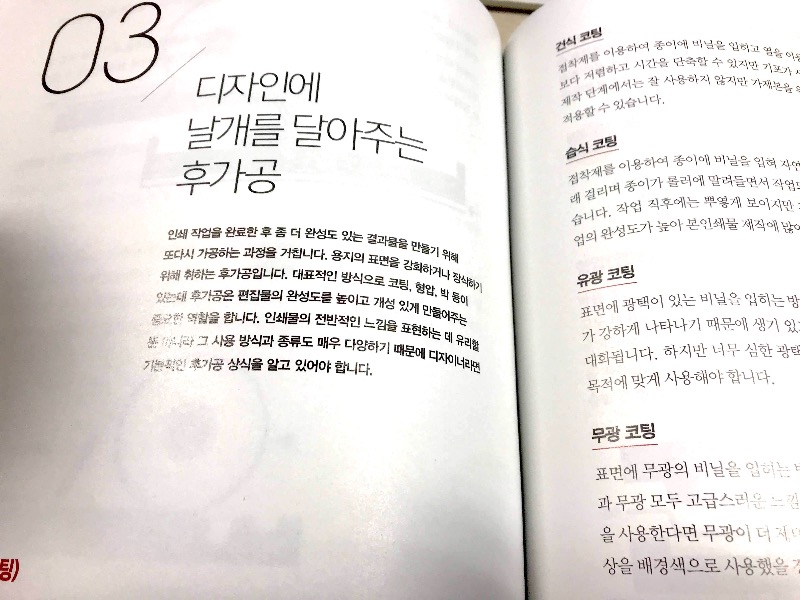 03
디자인에
날개를 달아주는
후가공
인쇄 작업을 완료한 후 좀 더 완성도 있는 결과물을 만들기 위해
또다시 가공하는 과정을 거칩니다. 용지의 표면을 강화하거나 장식하기
위해 취하는 후가공입니다. 대표적인 방식으로 코팅, 형압, 박 등이
있는데 후가공은 편집물의 완성도를 높이고 개성 있게 만들어주는
중요한 역할을 합니다. 인쇄물의 전반적인 느낌을 표현하는 데 유리할
뿐 아니라 그 사용 방식과 종류도 매우 다양하기 때문에 디자이너라면
기본적인 후가공 상식을 알고 있어야 합니다.
팅)
건식 코팅
접착제를 이용하여 종이에 비닐을 입히고 열을
보다 저렴하고 시간을 단축할 수 있지만 기포가
제작 단계에서는 잘 사용하지 않지만 가제본을
적용할 수 있습니다.
습식 코팅
접착제를 이용하여 종이에 비닐을 입혀
래 걸리며 종이가 롤러에 말려들면서 작업
습니다. 작업 직후에는 뿌옇게 보이지만
업의 완성도가 높아 본인쇄물 제작에 많이
유광 코팅
표면에 광택이 있는 비닐을 입히는 방
가 강하게 나타나기 때문에 생기 있
대화됩니다. 하지만 너무 심한 광택
목적에 맞게 사용해야 합니다.
무광 코팅
표면에 무광의 비닐을 입히는
과 무광 모두 고급스러운 느낌
을 사용한다면 무광이 더
상을 배경색으로 사용했을